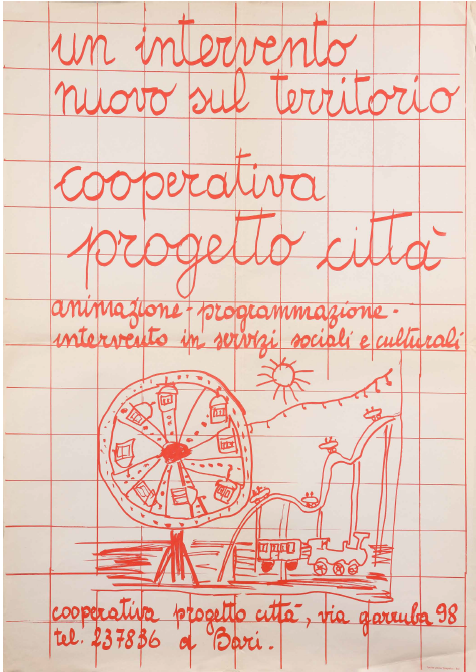 un intervento
nuovo sul territorio
cooperativa
progetto città
animazione - programmazione -
intervento in servizi sociali e culturali
cooperativa progetto città, via garruba 98
tel. 237836 a Bari.